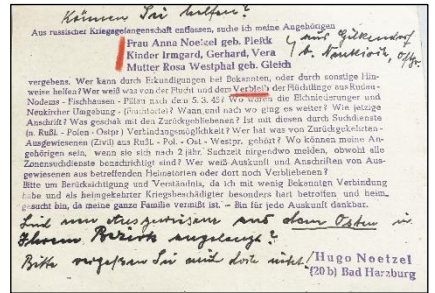 Können Sie helfen?
Aus russischer Kriegsgefangenschaft entlassen, suche ich meine Angehörigen
Frau Anna Noetzel geb. Pleftk
Kinder Irmgard, Gerhard, Vera
Mutter Rosa Westphal geb. Gleich
aus
b. Neukirch, O/Pr.
vergebens. Wer kann durch Erkundigungen bei Bekannten, oder durch sonstige Hin-
weise helfen? Wer weiß was von der Flucht und dem Verbleib der Flüchtlinge aus Rudau -
Nodems - Fischhausen - Pillau nach dem 5. 3. 45? Wo waren die Elchniederunger und
Neukircher Umgebung - Wann und nach wo ging es weiter? Wie jetzige
Anschrift? Was geschah mit den Zurückgebliebenen? Ist mit diesen durch Suchdienste
(n. Rußl. - Polen - Ostpr.) Verbindungsmöglichkeit? Wer hat was von Zurückgekehrten -
Ausgewiesenen (Zivil) aus Rußl. - Pol. - Ost - Westpr. gehört? Wo können meine An-
gehörigen sein, wenn sie sich nach 2 jähr. Suchzeit nirgendwo melden, obwohl alle
Zonensuchdienste benachrichtigt sind? Wer weiß Auskunft und Anschriften von Aus-
gewiesenen aus betreffenden Heimatorten oder dort noch Verbliebenen?
Bitte um Berücksichtigung und Verständnis, da ich mit wenig Bekannten Verbindung
habe und als heimgekehrter Kriegsbeschädigter besonders hart betroffen und heim-
gesucht bin, da meine ganze Familie vermißt ist. - Bin für jede Auskunft dankbar.
Sind nun Ausgewiesene aus dem Osten in
Ihrem Bezirk angelangt?
Bitte vergessen Sie mich doch nicht!
Hugo Noetzel
(20 b) Bad Harzburg